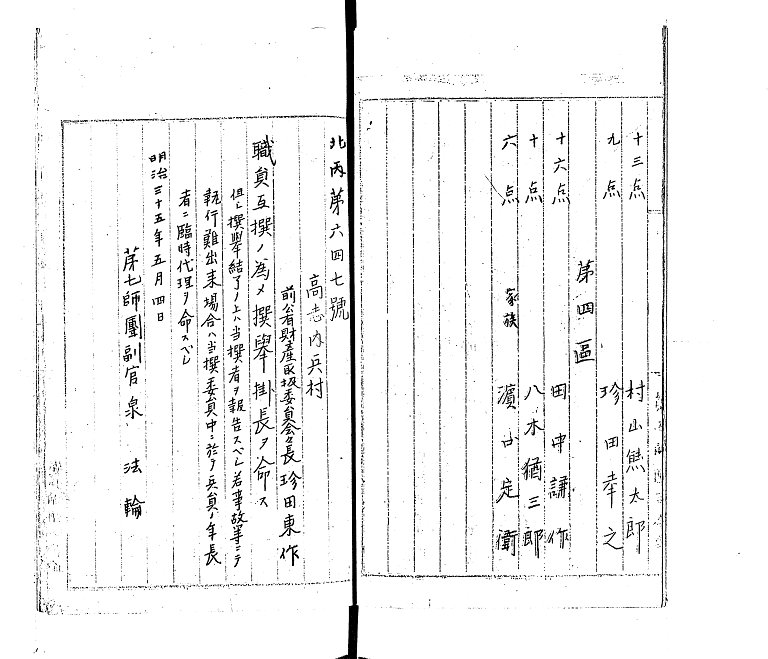 十三点 村山熊太郎
九点 珍田幸之
第四區
十六点 田中謙作
十点 八木猶三郎
六点 家族 濱口定衛
北丙第六四七號
高志内兵村
前公有財産取扱委員会々長珍田東作
職員互撰ノ為メ撰擧掛長ヲ命ス
但シ撰擧結了ノ上ハ当撰者ヲ報告スベシ若事故等ニテ
執行難出来場合ハ当撰委員中ニ於テ兵員ノ年長
者ニ臨時代理ヲ命スベシ
明治三十五年五月四日
第七師團副官泉 法輪